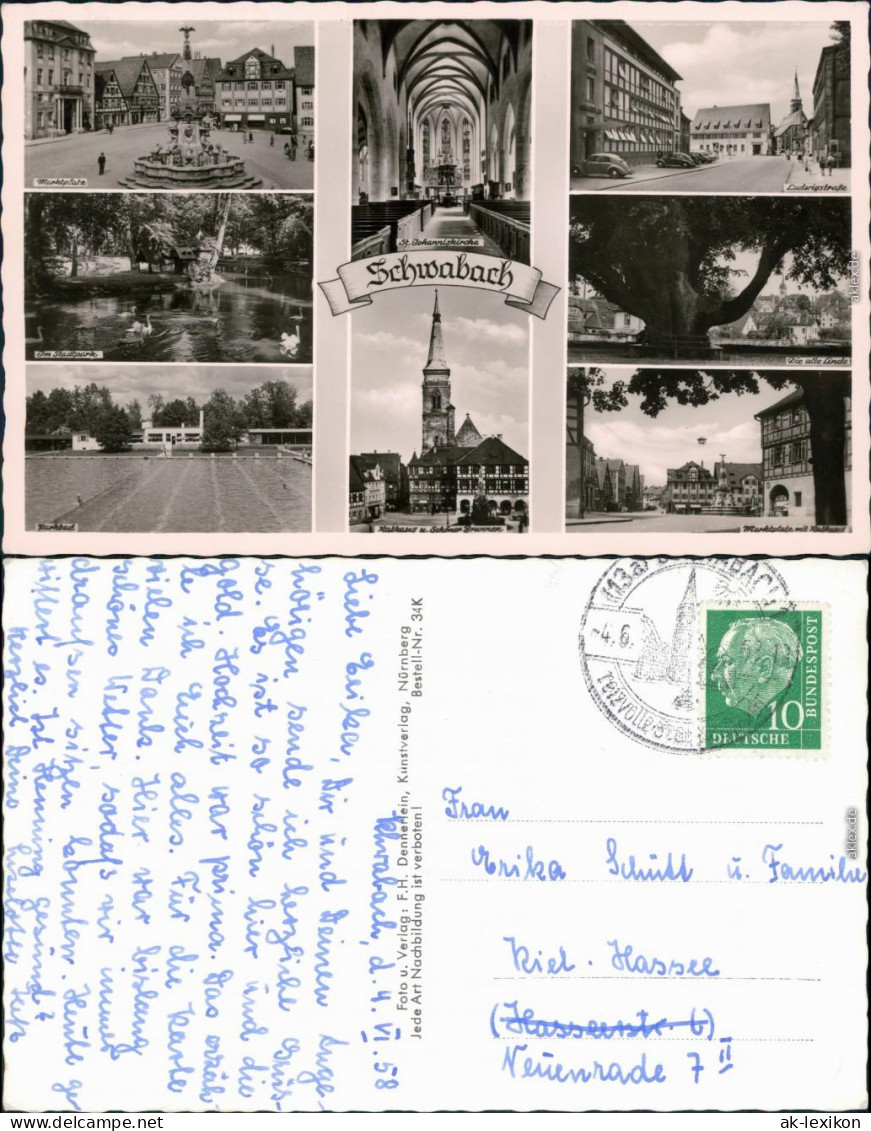 Marktplatz
St. Johanniskirche
Ludwigstraße
Schwabach
Im Stadtpark
Die alte Linde
Parkbad
Rathaus u. Schöner Brunnen
Marktplatz mit Rathaus
akklex.de
Schwabach, d. 4. VI. 58
Liebe Erika, Dir und Deinen Ange-
hörigen sende ich herzliche Grüs-
se. Es ist so schön hier und die
gold. Hochzeit war prima. Das erzäh-
le ich Euch alles. Für die Karte
vielen Dank. Hier war bislang
schönes Wetter, sodaß wir immer
draußen sitzen konnten. Heute ge-
wittert es. Ist Henning gesund?
Herzlich Deine
Foto u. Verlag: F.H. Dennerlein, Kunstverlag, Nürnberg
Jede Art Nachbildung ist verboten! Bestell-Nr. 34K
(13a)
-4.6.
reizvolle
10
DEUTSCHE
BUNDESPOST
Frau
Erika Schütt u. Familie
Kiel-Hassee
(Hasseestr. 6)
Neuenrade 7 II
akklex.de
ak-lexikon